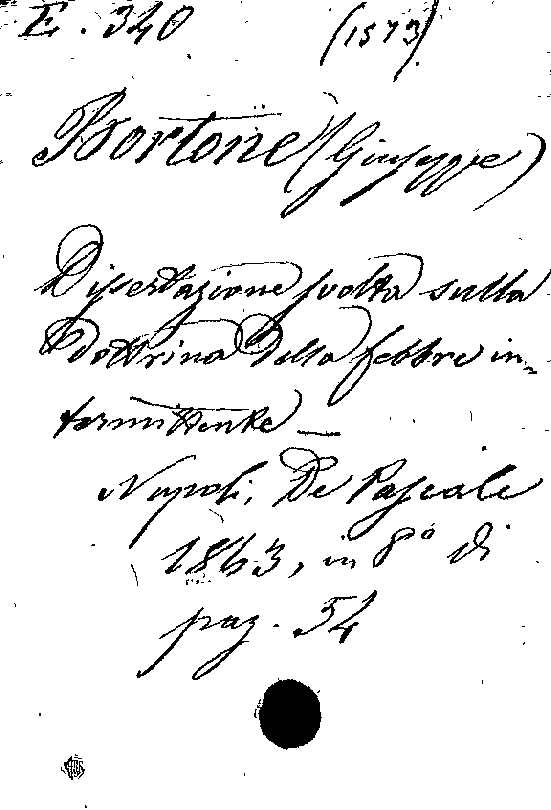 E. 340 (1573)
Bortone (Giuseppe)
Dissertazione svolta sulla
dottrina della febbre in-
termittente —
Napoli, De Pascale
1863, in 8° di
pag. 54